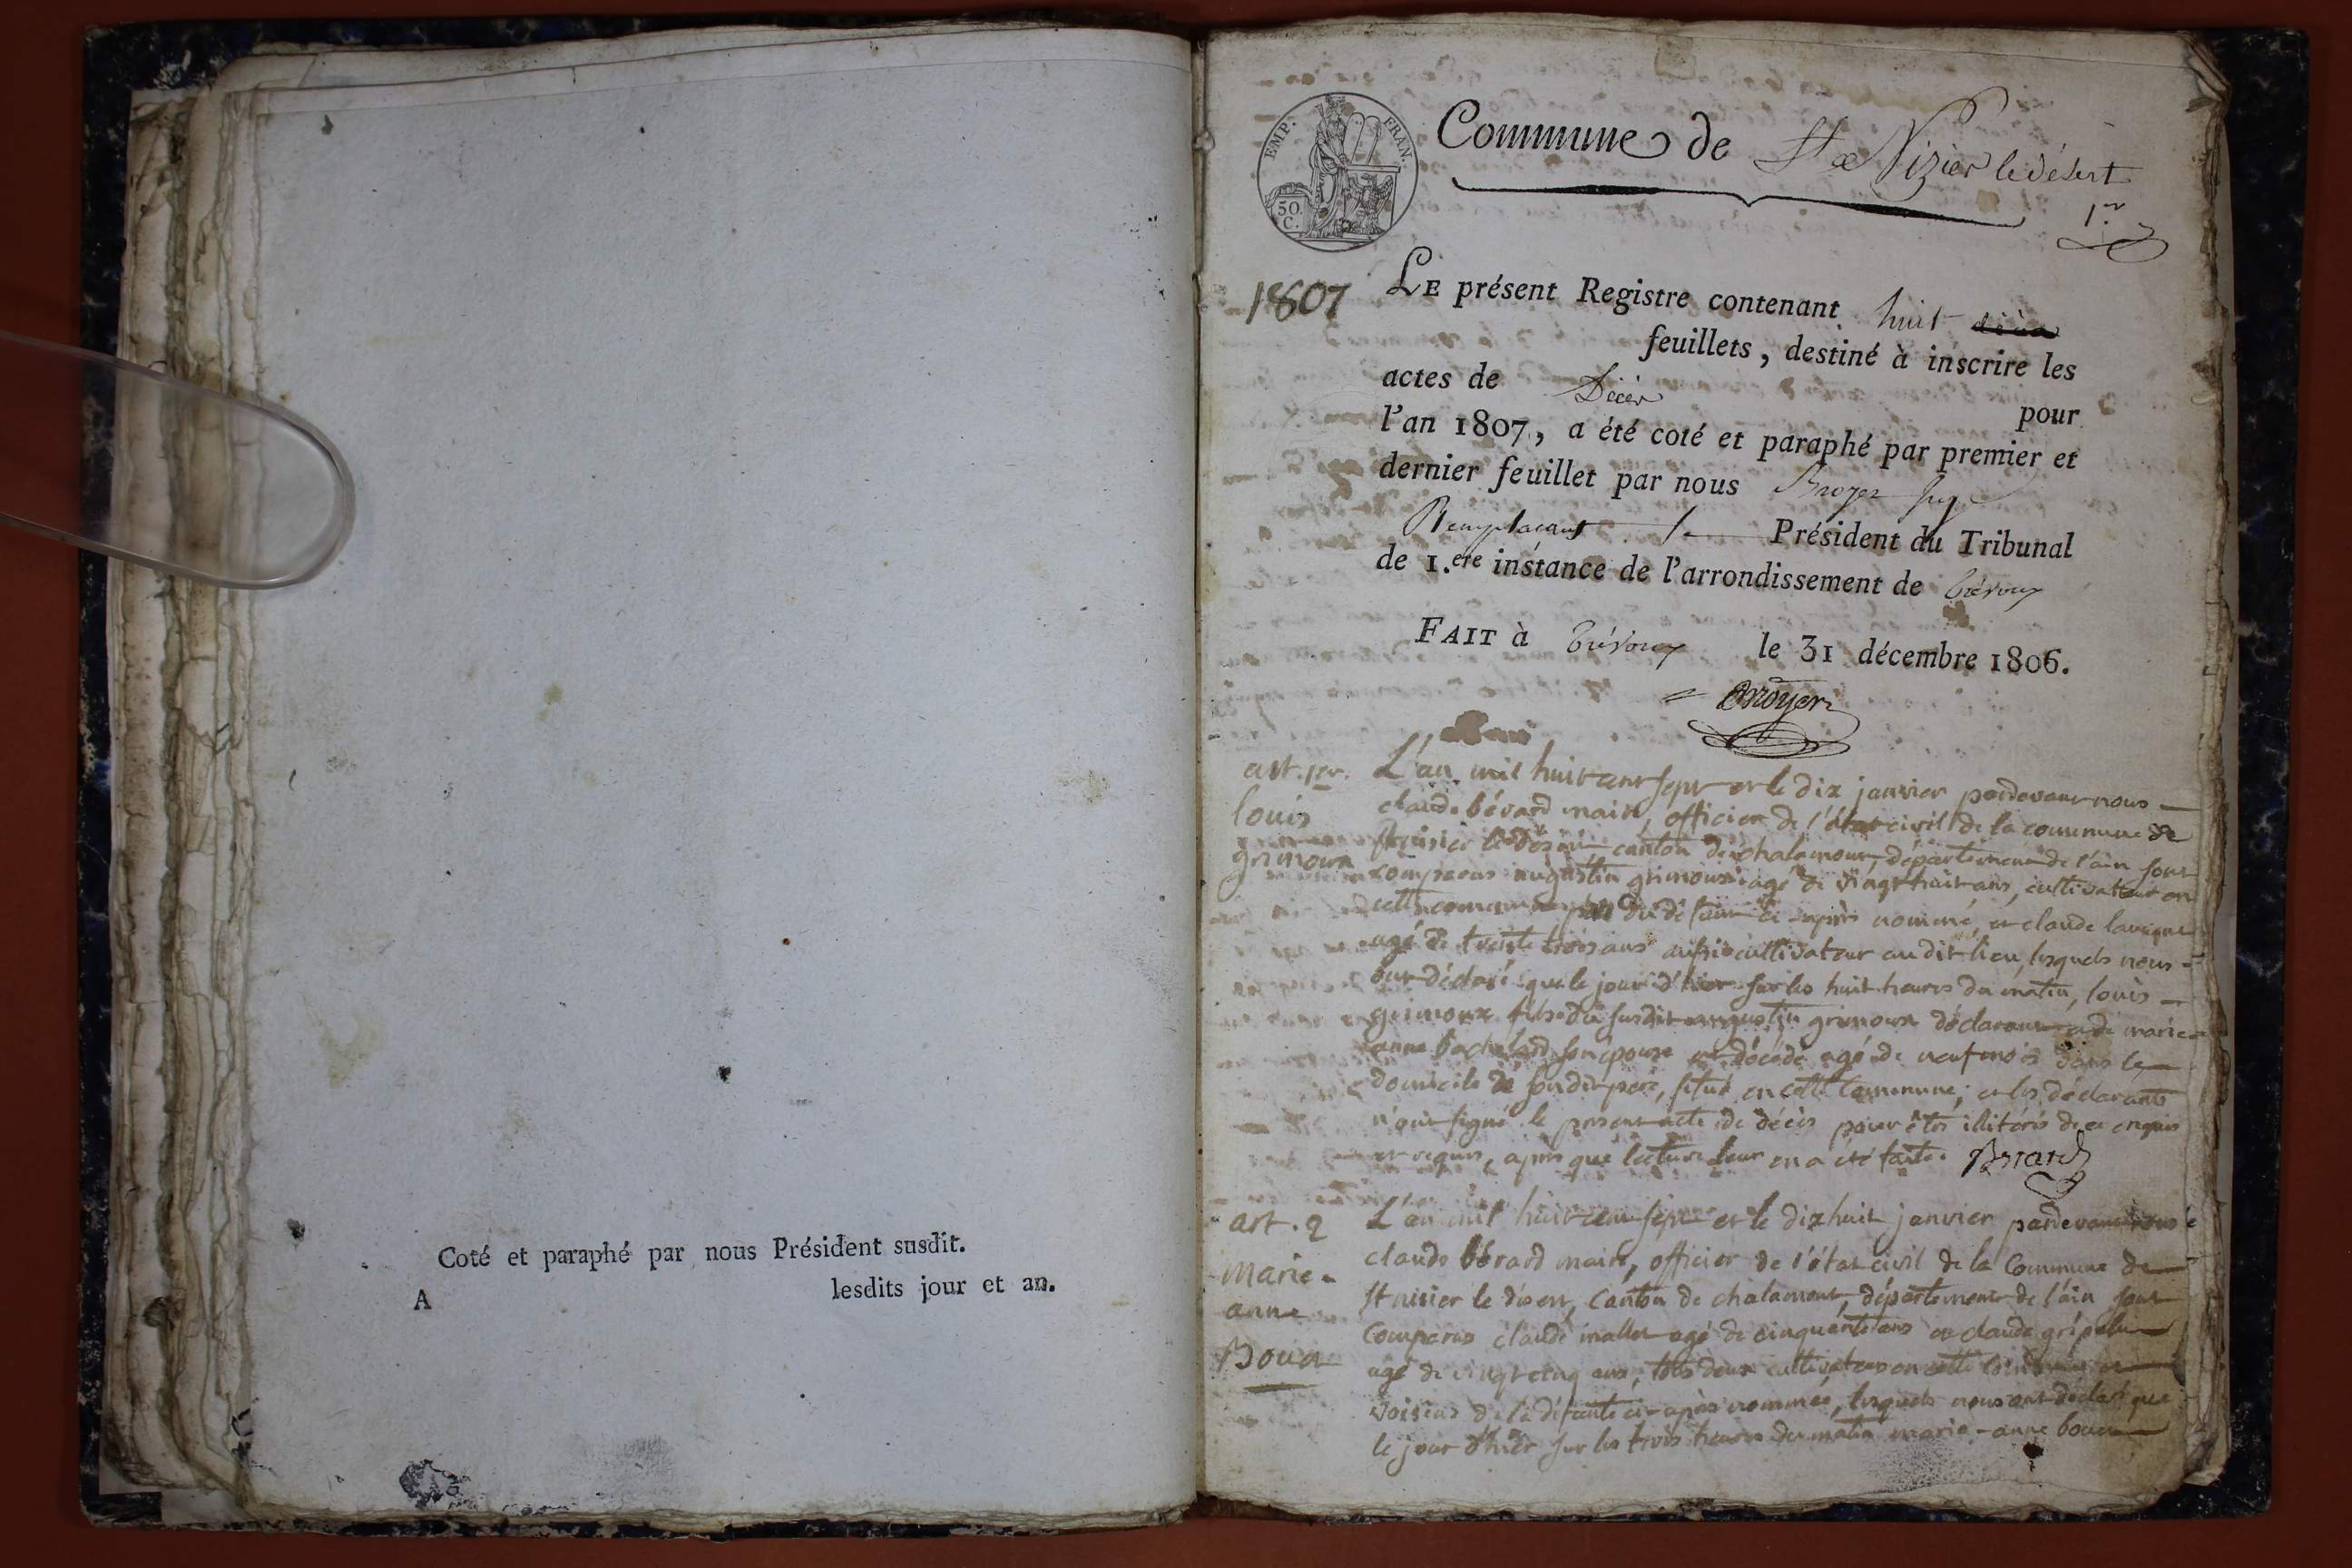 Coté et paraphé par nous Président susdit.
A lesdits jour et an.
EMP. FRAN.
50.
C.
Commune de St Nizier le désert
1.er
1807
LE présent Registre contenant huit
feuillets, destiné à inscrire les
actes de Décès pour
l'an 1807, a été coté et paraphé par premier et
dernier feuillet par nous Broyer juge
Remplaçant le Président du Tribunal
de 1.ere instance de l'arrondissement de Trévoux
FAIT à Trévoux le 31 décembre 1806.
Broyer
art. 1er.
louis
grimoux
L'an mil huit cent sept et le dix janvier pardevant nous
claude bérard maire, officier de l'état civil de la commune de
St nisier le désert canton de chalamont département de l'ain sont
comparus augustin grimoux agé de vingt huit ans, cultivateur en
cette commune du défunt ci après nommé, et claude
agé de trente trois ans aussi cultivateur au dit lieu, lesquels nous
ont déclaré que le jour d'hier sur les huit heures du matin, louis
grimoux fils du susdit augustin grimoux déclarant et de marie
anne bachelard son épouse est décédé agé de neuf mois dans le
domicile de son dit père, situé en cette Commune; et les déclarants
n'ont signé le présent acte de décès pour être illitérés de ce enquis
et requis, après que lecture leur en a été faite. Bérard
art. 2
Marie
anne
Boua
L'an mil huit cent sept et le dix huit janvier pardevant nous
claude bérard maire, officier de l'état civil de la Commune de
St nisier le désert, Canton de chalamont, département de l'ain sont
Comparus claude mallet agé de cinquante ans et claude
agé de vingt cinq ans, tous deux cultivateurs en cette Commune et
voisins de la défunte ci-après nommée, lesquels nous ont déclaré que
le jour d'hier sur les trois heures du matin marie-anne boua